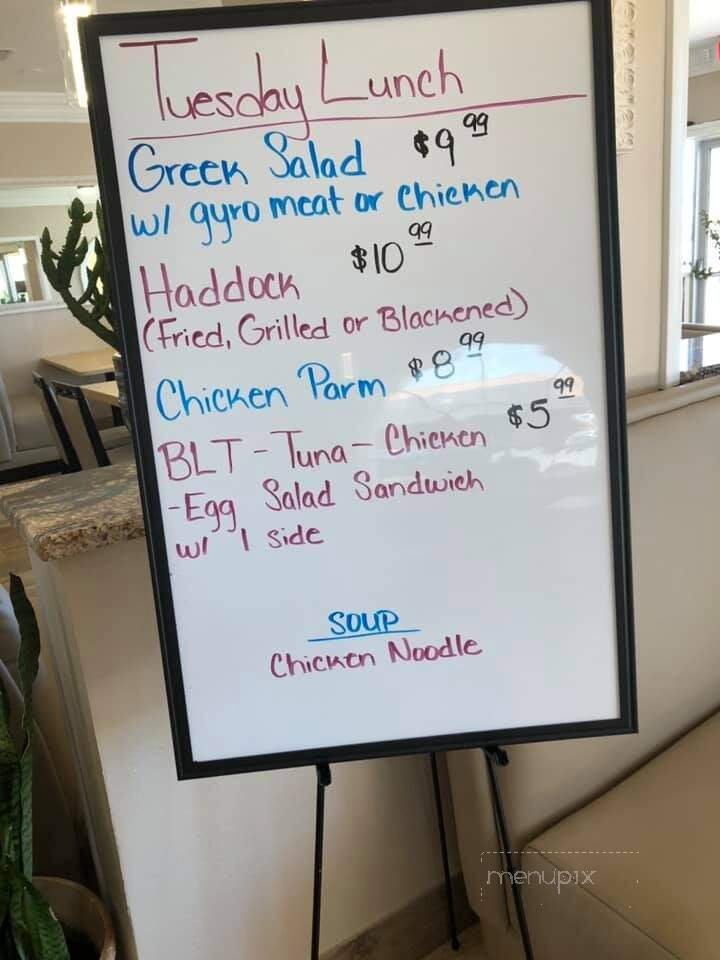 Tuesday Lunch
Greek Salad $9 99
w/ gyro meat or Chicken
Haddock $10 99
(Fried, Grilled or Blackened)
Chicken Parm $8 99
BLT - Tuna - Chicken $5 99
-Egg Salad Sandwich
w/ 1 side
SOUP
Chicken Noodle
menupix